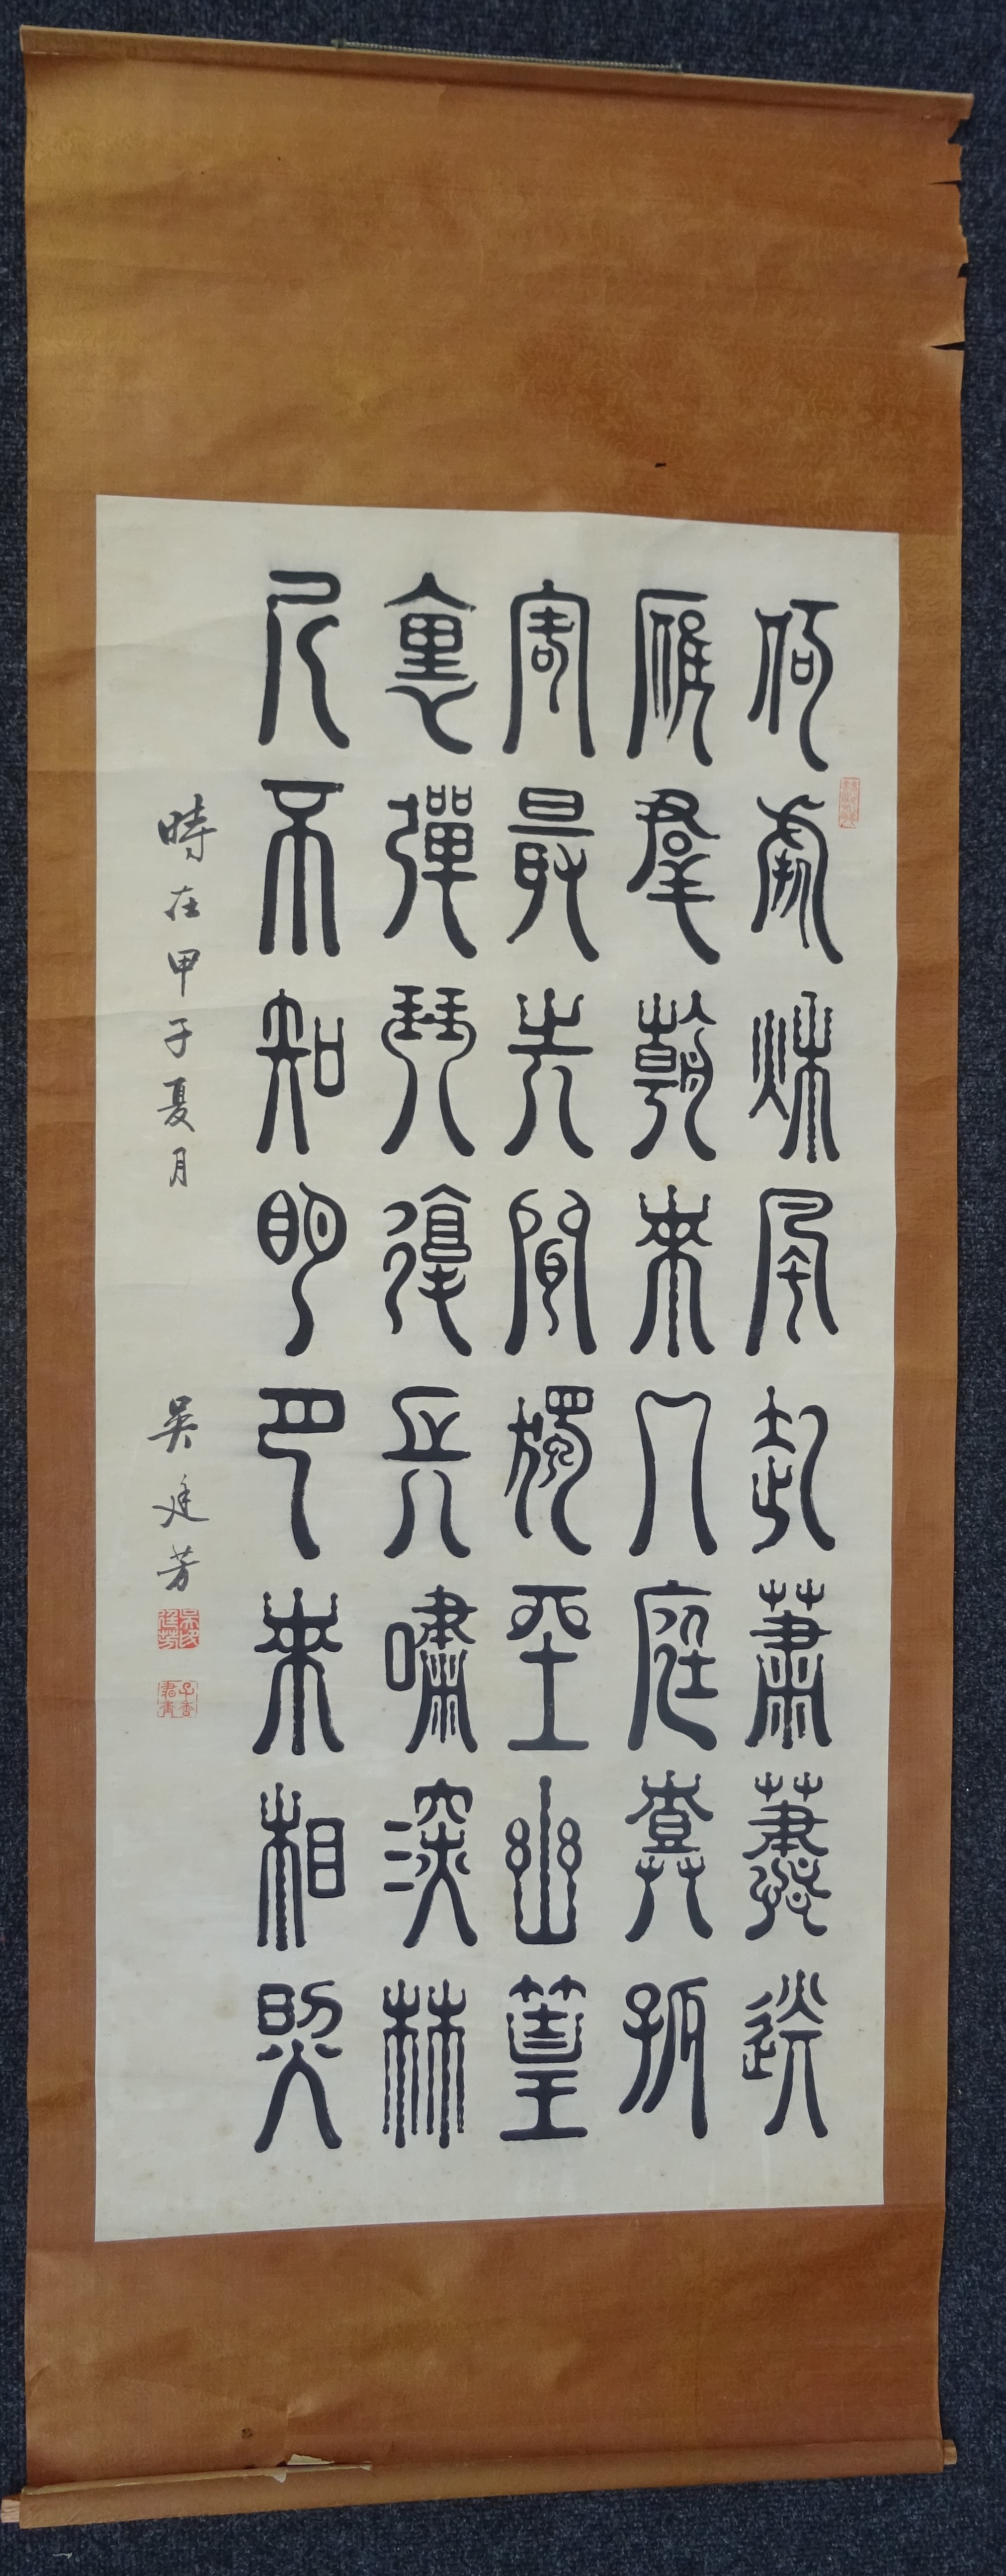 何處秋風起蕭蕭送
雁群朝來入庭樹孤
客最先聞獨坐幽篁
裏彈琴復長嘯深林
人不知明月來相照
時在甲子夏月
吳廷芳
吳廷芳印